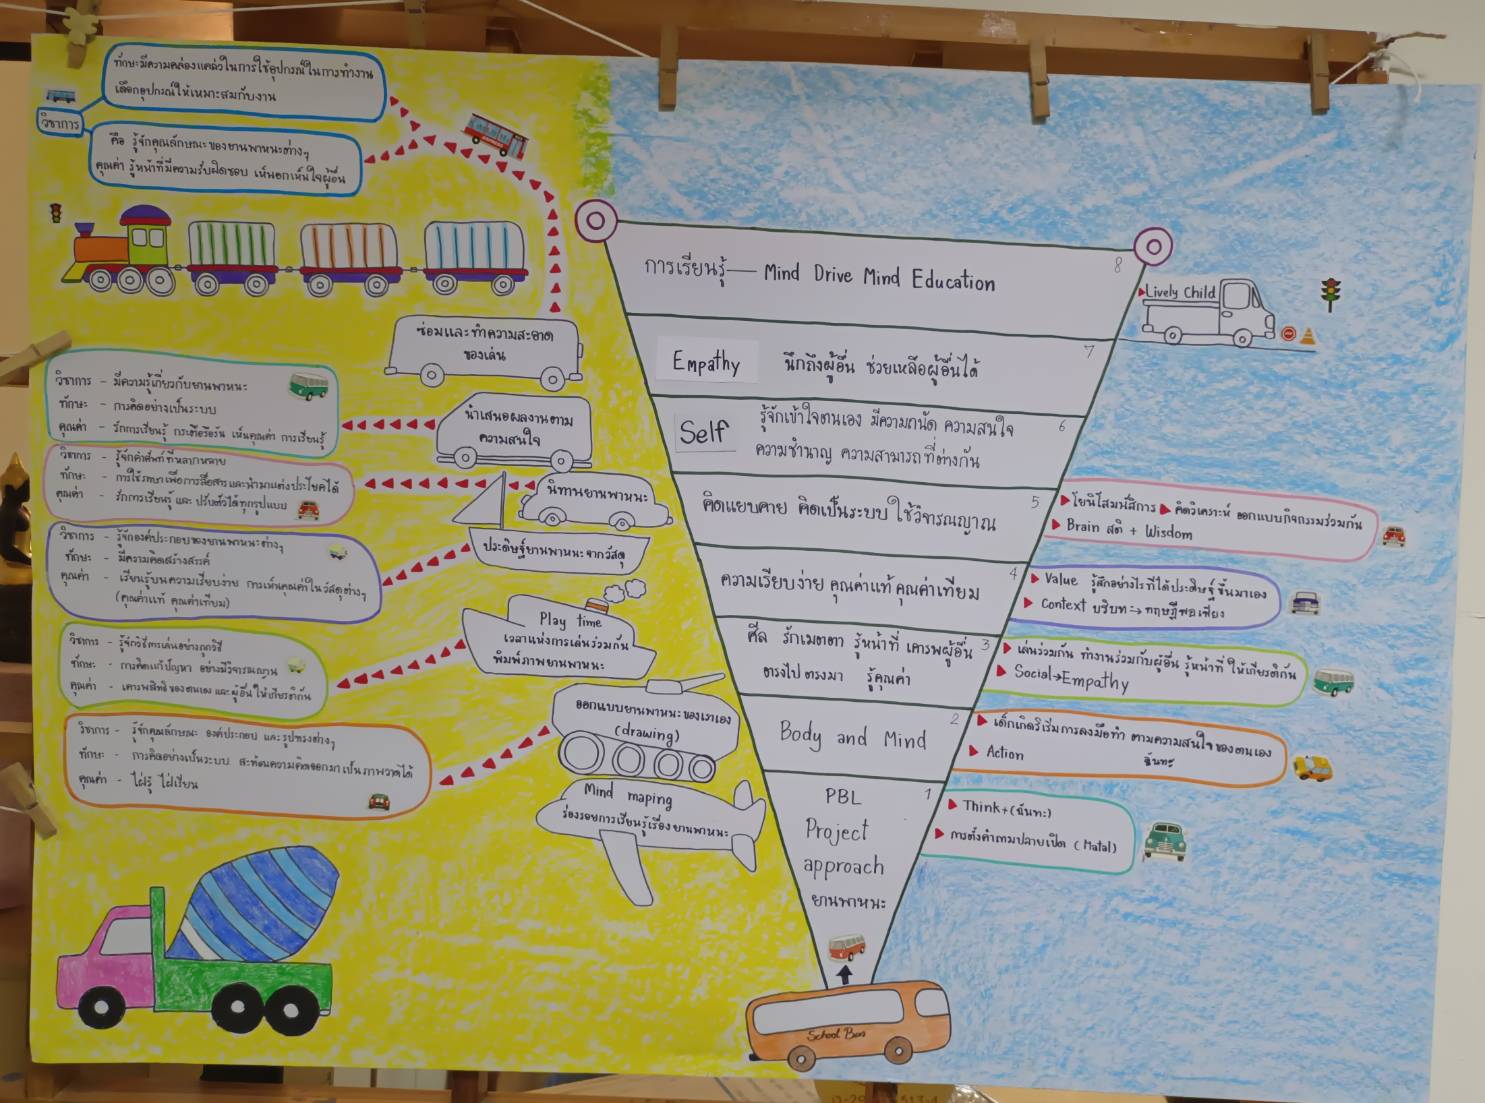 ทักษะมีความคล่องแคล่วในการใช้อุปกรณ์ในการทำงาน
เลือกอุปกรณ์ให้เหมาะสมกับงาน
วิชาการ
คือ รู้จักคุณลักษณะของยานพาหนะต่างๆ
คุณค่า รู้หน้าที่มีความรับผิดชอบ เห็นอกเห็นใจผู้อื่น
ซ่อมและทำความสะอาด
ของเล่น
วิชาการ - มีความรู้เกี่ยวกับยานพาหนะ
ทักษะ - การคิดอย่างเป็นระบบ
คุณค่า - รักการเรียนรู้ กระตือรือร้น เห็นคุณค่า การเรียนรู้
นำเสนอผลงานตาม
ความสนใจ
วิชาการ - รู้จักคำศัพท์ที่หลากหลาย
ทักษะ - การใช้ภาษาเพื่อการสื่อสารและนำมาแต่งประโยคได้
คุณค่า - รักการเรียนรู้ และ ปรับตัวได้ทุกรูปแบบ
นิทานยานพาหนะ
วิชาการ - รู้จักองค์ประกอบของยานพาหนะต่างๆ
ทักษะ - มีความคิดสร้างสรรค์
คุณค่า - เรียนรู้บนความเรียบง่าย การเห็นคุณค่าในวัสดุต่างๆ
(คุณค่าแท้ คุณค่าเทียม)
ประดิษฐ์ยานพาหนะจากวัสดุ
วิชาการ - รู้จักวิธีการเล่นอย่างถูกวิธี
ทักษะ - การคิดแก้ปัญหา อย่างมีวิจารณญาน
คุณค่า - เคารพสิทธิของตนเอง และผู้อื่น ให้เกียรติกัน
Play time
เวลาแห่งการเล่นร่วมกัน
พิมพ์ภาพยานพาหนะ
วิชาการ - รู้จักคุณลักษณะ องค์ประกอบ และรูปทรงต่างๆ
ทักษะ - การคิดอย่างเป็นระบบ สะท้อนความคิดออกมาเป็นภาพวาดได้
คุณค่า - ใฝ่รู้ ใฝ่เรียน
ออกแบบยานพาหนะของเราเอง
(drawing)
Mind maping
ร่องรอยการเรียนรู้เรื่องยานพาหนะ
8
การเรียนรู้ — Mind Drive Mind Education
7
Empathy นึกถึงผู้อื่น ช่วยเหลือผู้อื่นได้
6
Self รู้จักเข้าใจตนเอง มีความถนัด ความสนใจ
ความชำนาญ ความสามารถที่ต่างกัน
5
คิดแยบคาย คิดเป็นระบบ ใช้วิจารณญาณ
4
ความเรียบง่าย คุณค่าแท้ คุณค่าเทียม
3
ศีล รักเมตตา รู้หน้าที่ เคารพผู้อื่น
ตรงไปตรงมา รู้คุณค่า
2
Body and Mind
1
PBL
Project
approach
ยานพาหนะ
School Bus
Lively Child
โยนิโสมนสิการ คิดวิเคราะห์ ออกแบบกิจกรรมร่วมกัน
Brain สติ + Wisdom
Value รู้สึกอย่างไรที่ได้ประดิษฐ์ขึ้นมาเอง
Context บริบท → ทฤษฎีพอเพียง
เล่นร่วมกัน ทำงานร่วมกับผู้อื่น รู้หน้าที่ ให้เกียรติกัน
Social→Empathy
เด็กเกิดริเริ่มการลงมือทำ ตามความสนใจของตนเอง
Action ฉันทะ
Think+(ฉันทะ)
การตั้งคำถามปลายเปิด (Matal)